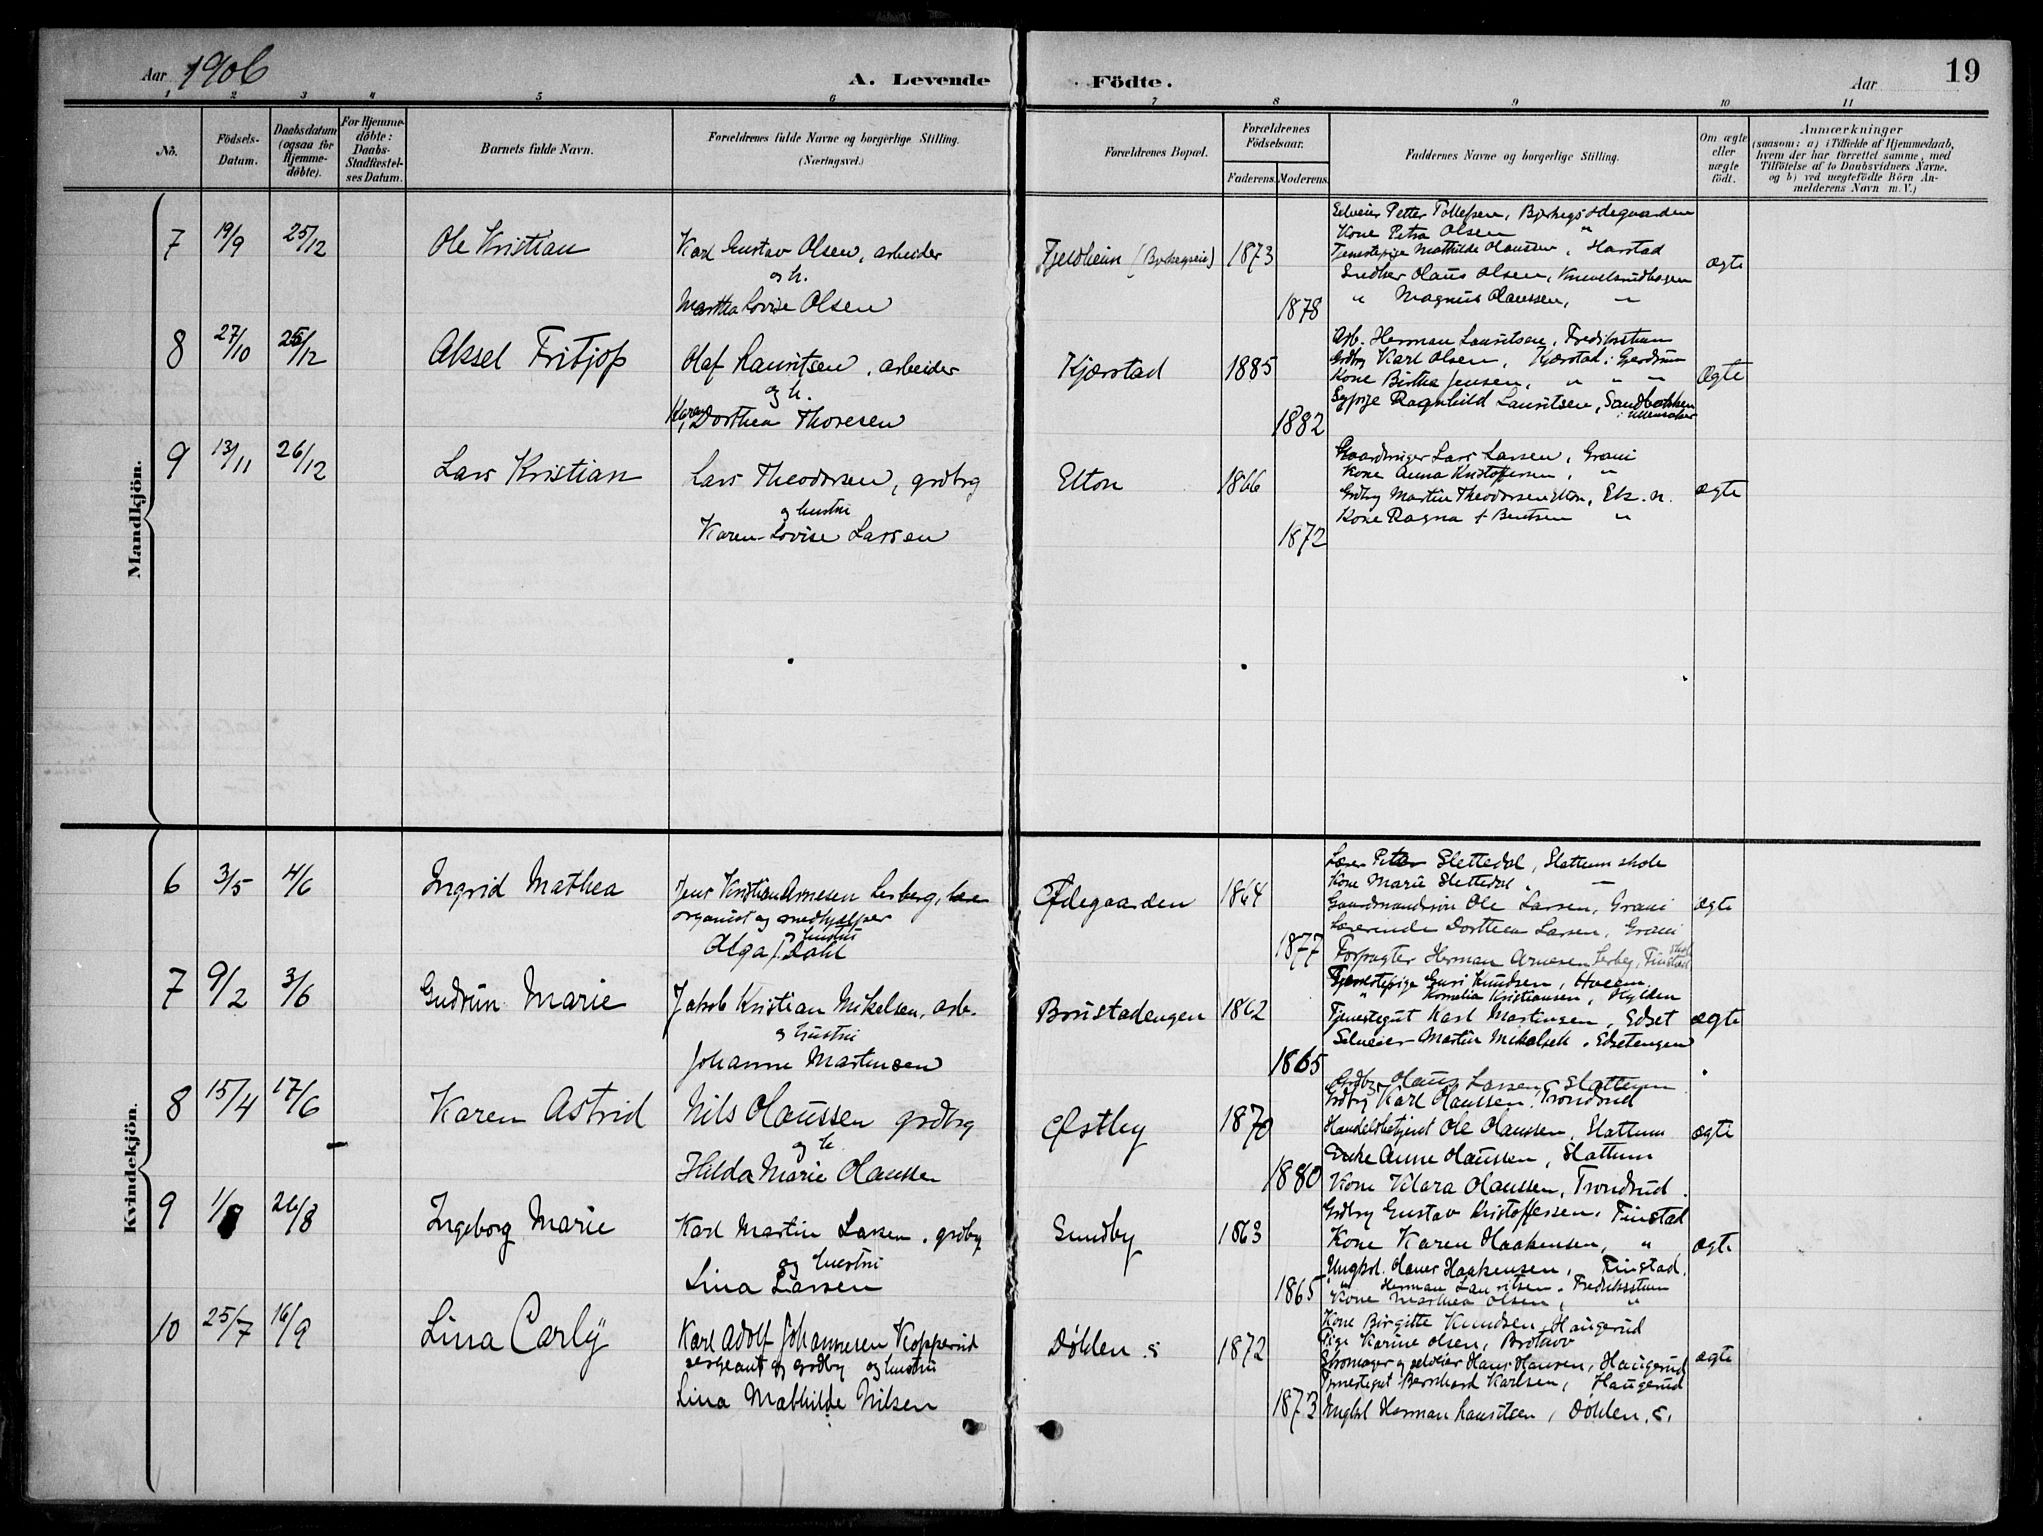 Aar 1906
A. Levende Födte.
Aar
19
1 2 3 4 5 6 7 8 9 10 11
No.
Födsels-Datum.
Daabsdatum (ogsaa for Hjemme-döbte).
For Hjemme-döbte: Daabs-Stadfæstel-ses Datum.
Barnets fulde Navn.
Forældrenes fulde Navne og borgerlige Stilling. (Næringsvei.)
Forældrenes Bopæl.
Forældrenes Födselsaar.
Faderens. Moderens.
Faddernes Navne og borgerlige Stilling.
Om ægte eller uægte födt.
Anmærkninger
(saasom: a) i Tilfælde af Hjemmedaab,
hvem der har forrettet samme, med
Tilföielse af to Daabsvidners Navne,
og b) ved uægtefödte Börn An-
melderens Navn m. V.)
Mandkjön.
7 19/9 25/12 Ole Kristian
Karl Gustav Olsen, arbeider
og h.
Martha Lovise Olsen
Fjeldheim (Bjerkegseie) 1873
1878
Selveier Petter Tollefsen, Bjerkegs ødegaarden
Kone Petra Olsen "
Tjenestepige Mathilde Olaussen, Harstad
Snedker Olaus Olsen, Knevelsrudhagen
" Magnus Olaussen, "
ægte
8 27/10 25/12 Aksel Fritjof
Olaf Lauritsen, arbeider
og h.
Karen Dorthea Thoresen
Kjærstad 1885
1882
Arb. Herman Lauritsen, Fredikstum
Grdbr Karl Olsen, Kjærstad i Gjerdrum
Kone Birthe Jensen, " " "
Sypige Ragnhild Lauritsen, Sandbakken
i Ullensaker
Ægte
9 13/11 26/12 Lars Kristian
Lars Theodorsen, grdbrg
og hustri
Karen Lovise Larsen
Elton 1866
1872
Gaardbruger Lars Larsen, Grani
Kone Anna Kristoffersen, "
Grdbrg Martin Theodorsen Elton, Elt. n.
Kone Ragna f. Berntsen "
ægte
Kvindekjön.
6 3/5 4/6 Ingrid Mathea
Jens Kristian Arnesen Lerberg, lærer
organist og smedhjælper
og hustri
Olga f. Dahl
Ødegaarden 1864
1877
Lærer Petter Slettedal, Slattum skole
Kone Marie Slettedal, "
Gaardmandssøn Ole Larsen, Grani
Lærerinde Dorthea Larsen, Grani
Forpagter Herman Arnesen Lerbeg, Tinstad
ægte
7 9/2 3/6 Gudrun Marie
Jakob Kristian Mikelsen, arb.
og hustri
Johanne Martinsen
Brustadengen 1862
1865
Tjenestepige Guri Knudsen, Hveem
" Kornelia Kristiansen, Kylden
Tjenestegut Karl Martinsen, Edset
Selveier Martin Mikelsen, Edsetengen
ægte
8 15/4 17/6 Karen Astrid
Nils Olaussen grdbrg
og h.
Hilda Marie Olaussen
Østby 1870
1880
Grdbr Olaus Larsen, Slattum
Grdbrg Karl Olaussen, Trondrud
Handelsbetjent Ole Olaussen, Slattum
Enke Anne Olaussen, Slattum
Kone Klara Olaussen, Trondrud.
ægte
9 1/8 26/8 Ingeborg Marie
Karl Martin Larsen, grdbrg
og hustri
Lina Larsen
Sundby 1863
1865
Grdbrg Gustav Kristoffersen, Tinstad
Kone Karen Haakensen, "
Ungkrl. Olaves Haakensen, Tinstad.
" Herman Lauritsen, Fredikstum
Kone Mathea Olsen, "
ægte
10 25/7 16/9 Lina Carly
Karl Adolf Johannesen Kopperud
sergeant og grdbrg og hustri
Lina Mathilde Nilsen
Døhlen s 1872
1873
Kone Birgitte Knudsen, Haugerud
Pige Karine Olsen, Brotnov
Skomager og selveier Hans Hansen, Haugerud
Tjenestegut Bernhard Karlsen, Haugerud
Ungkrl Herman Lauritsen, Døhlen, s.
ægte